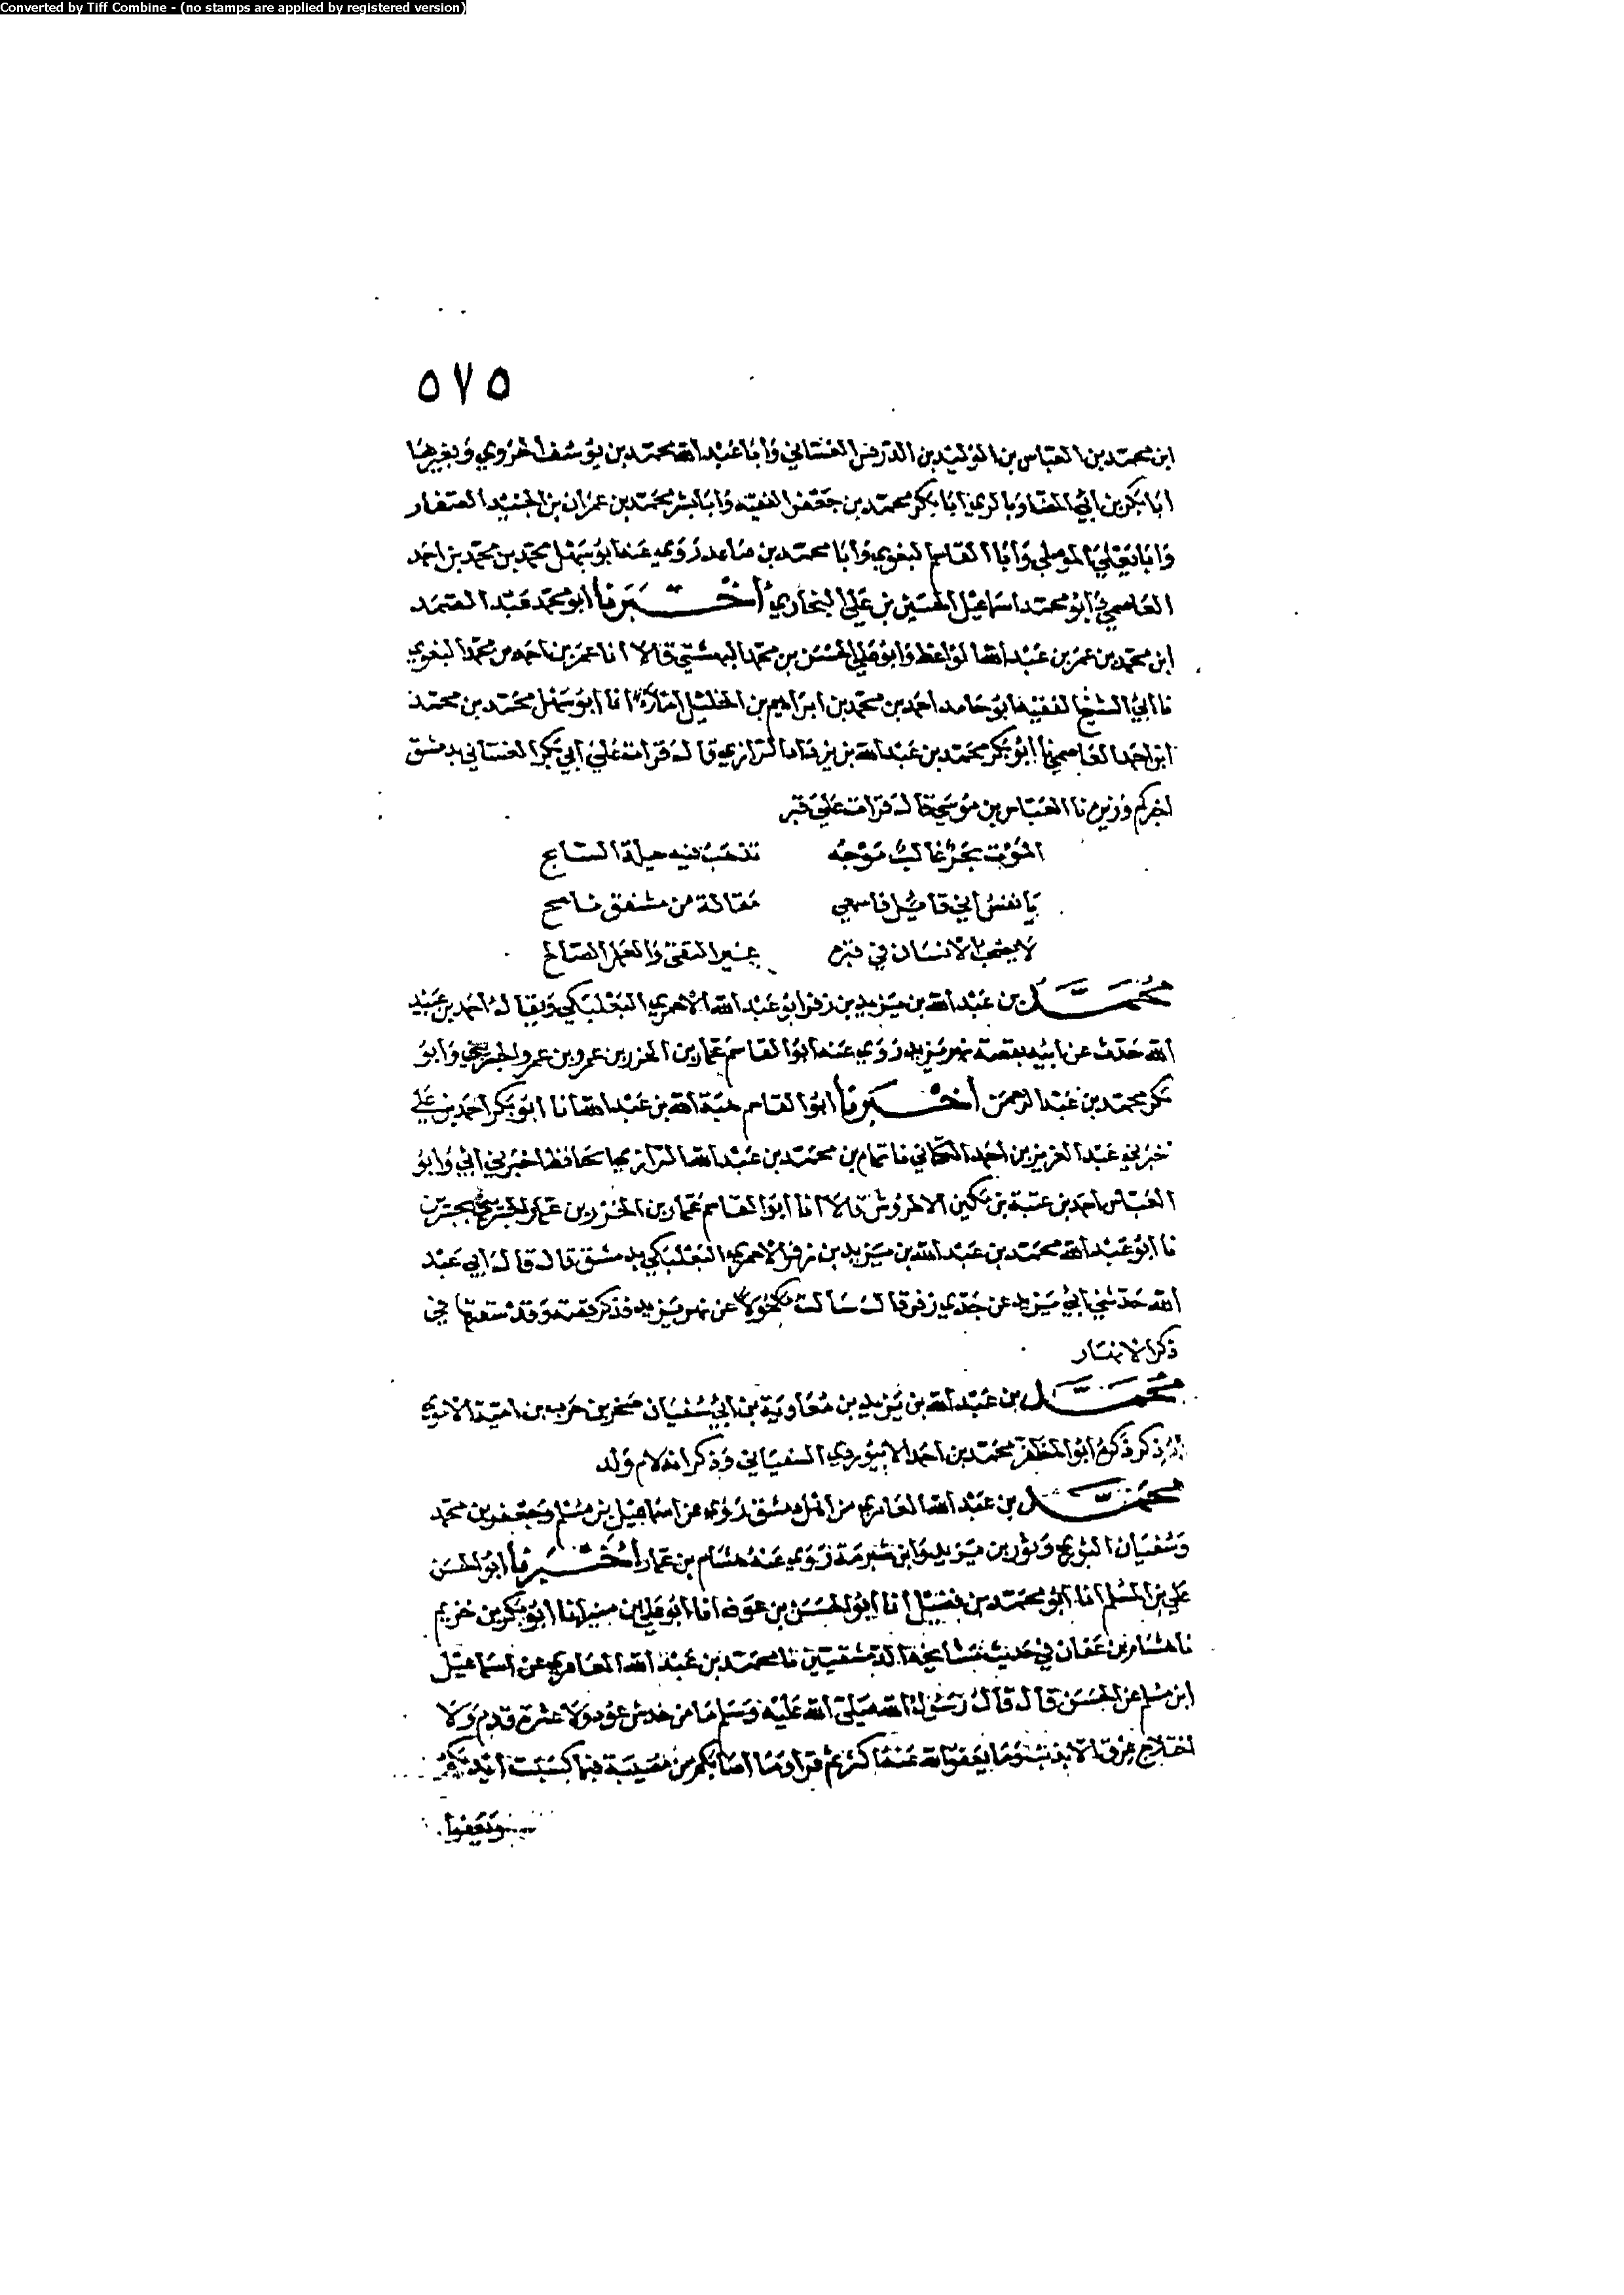 Converted by Tiff Combine - (no stamps are applied by registered version)
٥٧٥
ابن محمد بن العباس بن الوليد بن الدرفس الغساني وأبا عبد الله محمد بن يوسف الهروي وبغيرها
ابا بكر بن ابي بالري ابا بكر محمد بن جعفر الفقيه وأبا بشر محمد بن عمران بن الجنيد الصفار
وَابا يَعْلي الموصلي وَأبا القاسم البغوي وَأبا محمد بن صاعد رَوي عنه ابو سَهْل محمد بن محمد بن احمد
العاصمي وابو محمد اسماعيل الحسين بن علي البخاري أخبرنا ابو محمد عبد الصمد
ابن محمد بن عمر بن عبد الله الواعظ وابو علي الحسن بن محمد البستي قالا انا عمر بن احمد بن محمد البغوي
نا ابي الشيخ الفقيه ابو حامد احمد بن محمد بن ابراهيم بن الخليل انا ابو سهل محمد بن محمد
ابن احمد العاصمي نا ابو بكر محمد بن عبد الله بن يزداد الرازي قال قرات علي ابي بكر الغساني بدمشق
اخبركم وزير نا العباس بن موسي قال قرات علي قبر
الموت بحر غالب موجه تذهب فيه حيلة السابح
يا نفس اني قائل فاسمعي مقالة من مشفق ناصح
لا يصحب الانسان في قبره غير التقى والعمل الصالح
محمد بن عبد الله بن يزيد بن زفر ابو عبد الله الاحمري البعلبكي ويقال احمد بن عبيد
الله حدث عن ابيه بقصة نهر يزيد روي عنه ابو القاسم عمار بن الخزر بن عمرو بن عمر الجسريني وابو
بكر محمد بن عبد الرحمن أخبرنا ابو القاسم هبة الله بن عبد الله انا ابو بكر احمد بن علي
اخبرني عبد العزيز بن احمد الكتاني نا تمام بن محمد بن عبد الله الرازي الحافظ اخبرني ابي وابو
العباس احمد بن عتبة بن مكين الاطروش قالا انا ابو القاسم عمار بن الخزر بن عمار الجسريني بجسرين
نا ابو عبد الله محمد بن عبد الله بن يزيد بن زفر الاحمري البعلبكي بدمشق قال قال ابي عبد
الله حدثني ابي يزيد عن جدي زفر قال سالت مكحولا عن نهر يزيد فذكر قصته وقد سقتها في
ذكر الانهار
محمد بن عبد الله بن يزيد بن معاوية بن ابي سفيان صخر بن حرب بن امية الاموي
له ذكر ذكره ابو المظفر محمد بن احمد الابيوردي السفياني وذكر انه لام ولد
محمد بن عبد الله العامري من اهل دمشق روي عن اسماعيل بن مسلم وجعفر بن محمد
وسفيان الثوري وثور بن يزيد وابن شبرمة روي عنه هشام بن عمار أخبرنا ابو الحسن
علي بن المسلم انا ابو محمد بن فضيل انا ابو الحسن بن عوف انا ابو علي بن منير انا ابو بكر بن خريم
نا هشام بن عفان في حديث مشايخه الدمشقيين نا محمد بن عبد الله العامري عن اسماعيل
ابن مسلم عن الحسن قال قال رسول الله صلى الله عليه وسلم ما من خدش عود ولا عثرة قدم ولا
اختلاج عرق الا بذنب وما يعفو الله عنه اكثر ثم قرا وما اصابكم من مصيبة فبما كسبت ايديكم
ويعفوا